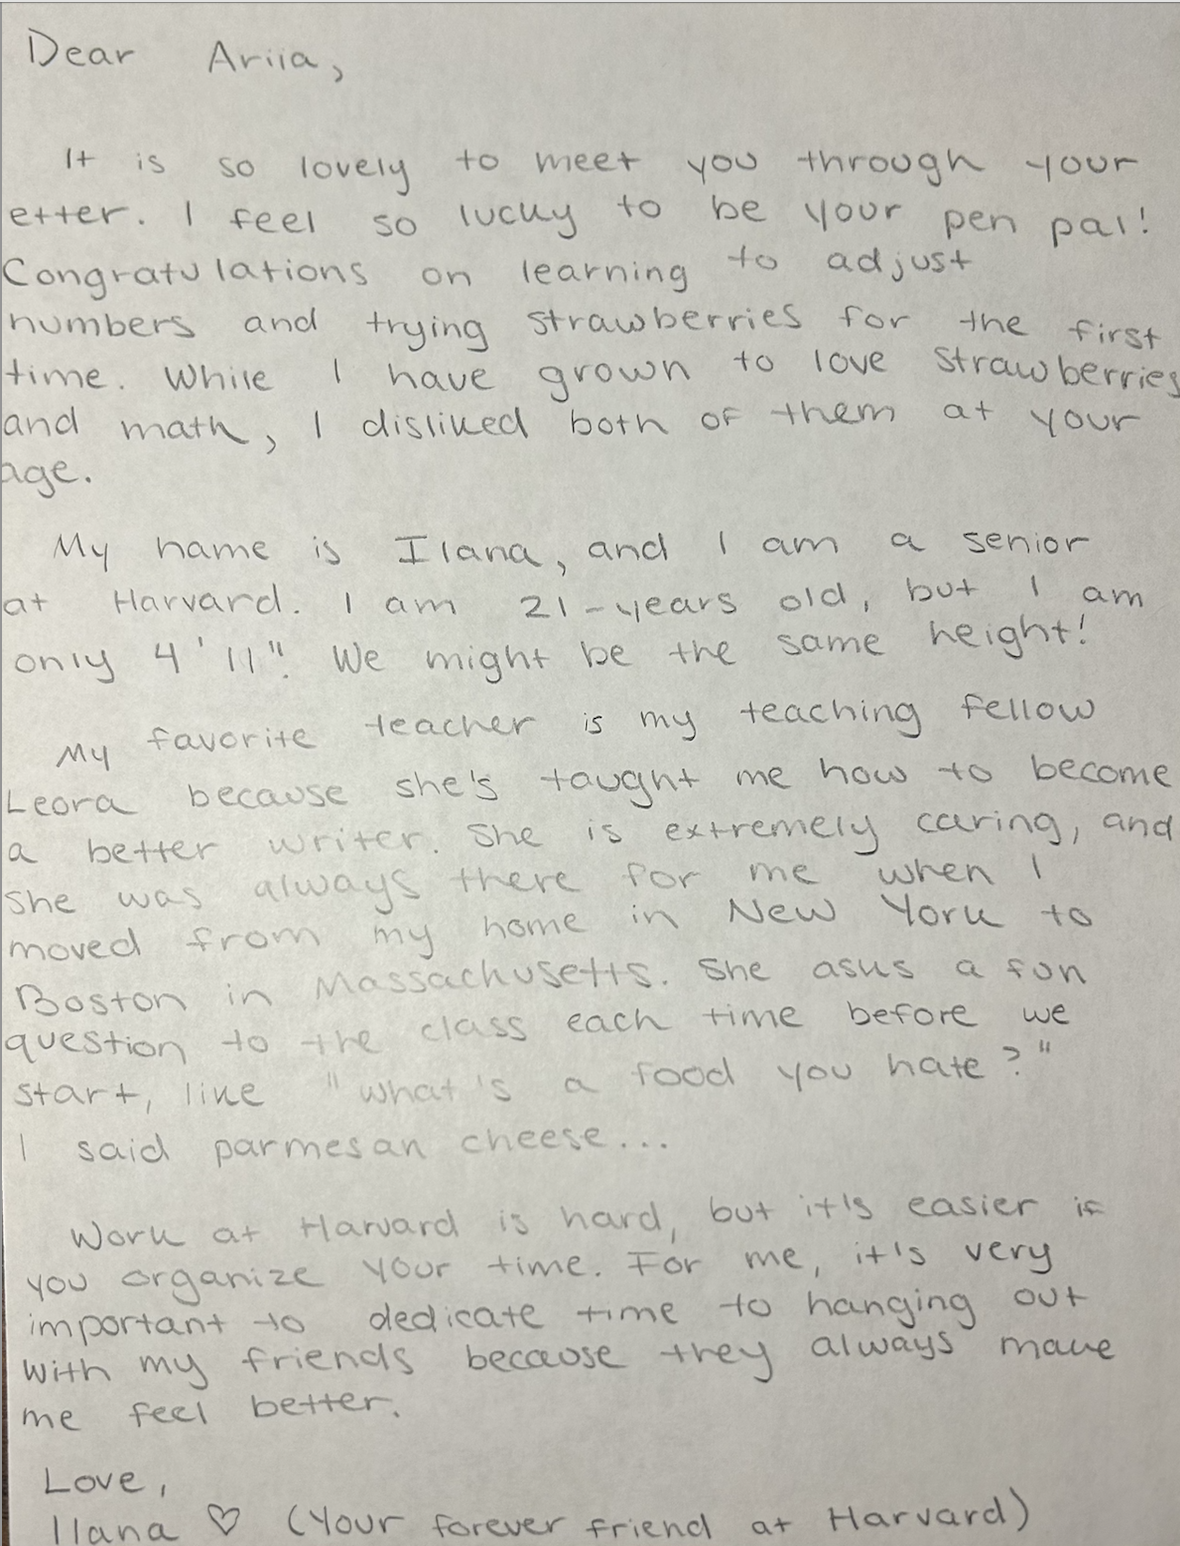 Dear Ariia,
It is so lovely to meet you through your
etter. I feel so lucky to be your pen pal!
Congratulations on learning to adjust
numbers and trying strawberries for the first
time. While I have grown to love strawberries
and math, I disliked both of them at your
age.
My name is Ilana, and I am a senior
at Harvard. I am 21-years old, but I am
only 4'11"! We might be the same height!
My favorite teacher is my teaching fellow
Leora because she's taught me how to become
a better writer. She is extremely caring, and
she was always there for me when I
moved from my home in New York to
Boston in Massachusetts. She asks a fun
question to the class each time before we
start, like "what's a food you hate?"
I said parmesan cheese...
Work at Harvard is hard, but it's easier if
you organize your time. For me, it's very
important to dedicate time to hanging out
with my friends because they always make
me feel better.
Love,
Ilana ♡ (Your forever friend at Harvard)